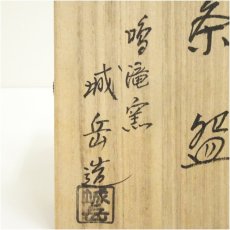 茶盌
鳴滝窯
城岳造
城岳